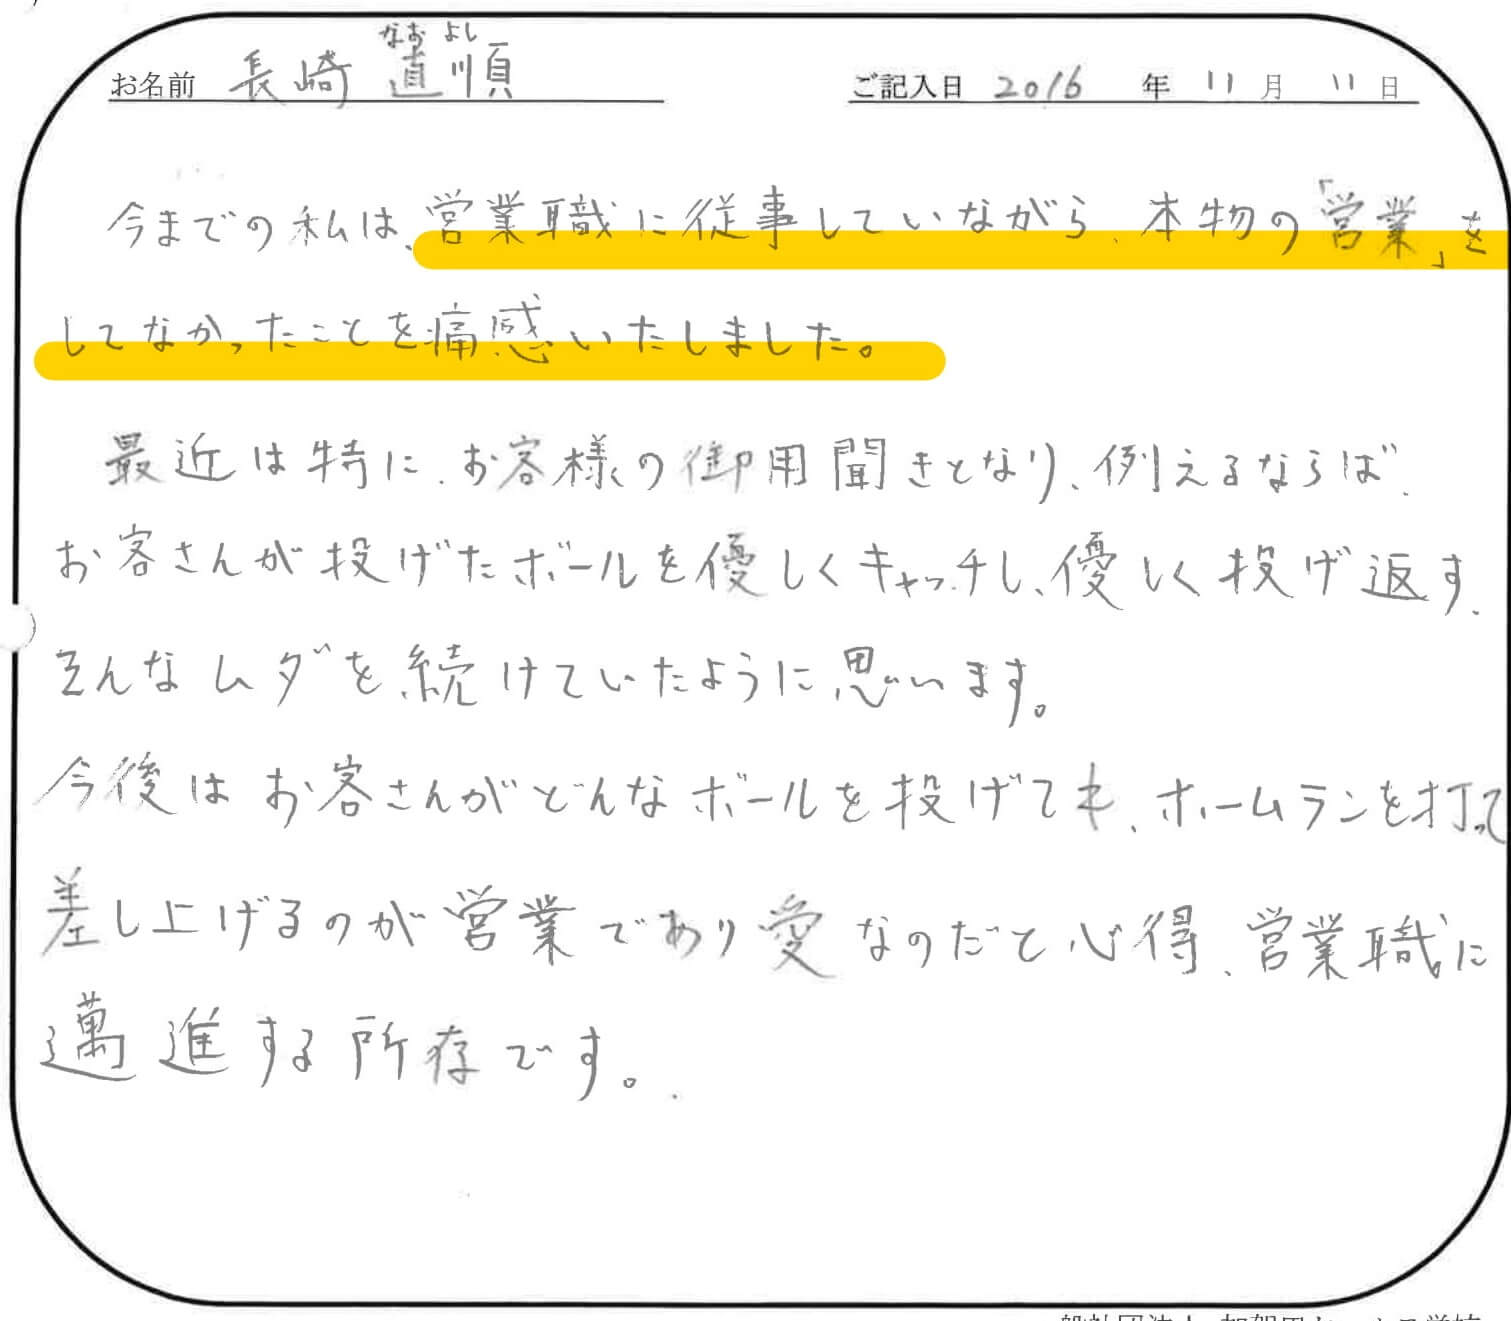 なお よし
お名前 長崎 直順 ご記入日 2016 年 11 月 11 日
今までの私は、営業職に従事していながら、本物の「営業」を
してなかったことを痛感いたしました。
最近は特に、お客様の御用聞きとなり、例えるならば、
お客さんが投げたボールを優しくキャッチし、優しく投げ返す、
そんなムダを続けていたように思います。
今後はお客さんがどんなボールを投げても、ホームランを打って
差し上げるのが営業であり愛なのだと心得、営業職に
邁進する所存です。